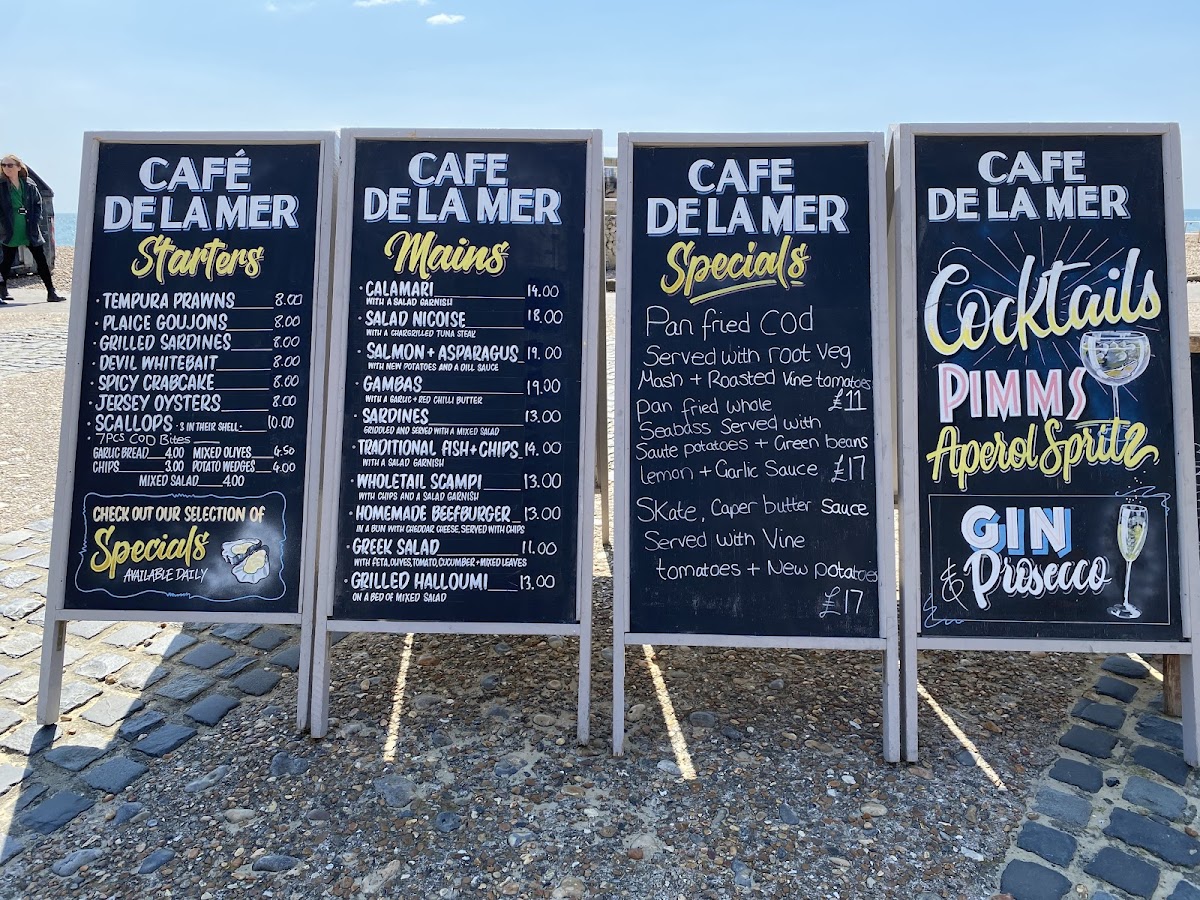 CAFÉ
DE LA MER
Starters
· TEMPURA PRAWNS 8.00
· PLAICE GOUJONS 8.00
· GRILLED SARDINES 8.00
DEVIL WHITEBAIT 8.00
· SPICY CRABCAKE 8.00
· JERSEY OYSTERS 8.00
SCALLOPS · 3 IN THEIR SHELL · 10.00
· 7PCS COD Bites
GARLIC BREAD 4.00 MIXED OLIVES 4.50
CHIPS 3.00 POTATO WEDGES 4.00
MIXED SALAD 4.00
CHECK OUT OUR SELECTION OF
Specials
AVAILABLE DAILY
CAFE
DE LA MER
Mains
· CALAMARI 14.00
WITH A SALAD GARNISH
· SALAD NICOISE 18.00
WITH A CHARGRILLED TUNA STEAK
· SALMON + ASPARAGUS 19.00
WITH NEW POTATOES AND A DILL SAUCE
· GAMBAS 19.00
WITH A GARLIC + RED CHILLI BUTTER
· SARDINES 13.00
GRIDDLED AND SERVED WITH A MIXED SALAD
· TRADITIONAL FISH + CHIPS 14.00
WITH A SALAD GARNISH
· WHOLETAIL SCAMPI 13.00
WITH CHIPS AND A SALAD GARNISH
· HOMEMADE BEEFBURGER 13.00
IN A BUN WITH CHEDDAR CHEESE, SERVED WITH CHIPS
· GREEK SALAD 11.00
WITH FETA, OLIVES, TOMATO, CUCUMBER + MIXED LEAVES
· GRILLED HALLOUMI 13.00
ON A BED OF MIXED SALAD
CAFE
DE LA MER
Specials
Pan fried cod
Served with root veg
Mash + Roasted Vine tomatoes
£11
Pan fried whole
Seabass Served with
Saute potatoes + Green beans
Lemon + Garlic Sauce £17
Skate, Caper butter sauce
Served with Vine
tomatoes + New potatoes
£17
CAFE
DE LA MER
Cocktails
PIMMS
Aperol Spritz
GIN
& Prosecco